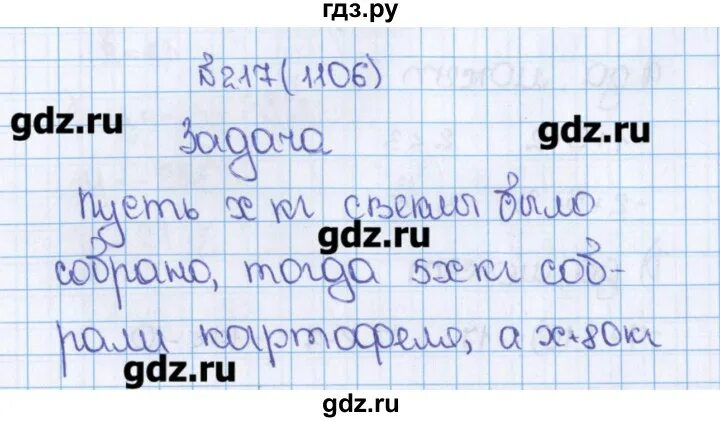 гдз.ру
в217(1106)
gdz.ru
gdz.ru
Задача
Пусть х кг свеклы было
gdz.ru
собрано, тогда 5х кг соб-
рали картофеля, а х+80кг
gdz.ru
gdz.ru